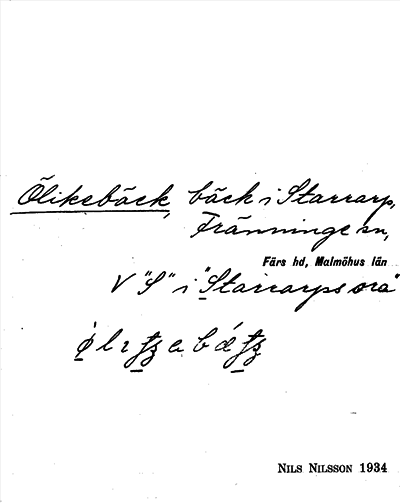 Ölikebäck, bäck i Starrarp,
Fränninge sn,
Färs hd, Malmöhus län
V "S" i "Starrarps ora"
NILS NILSSON 1934